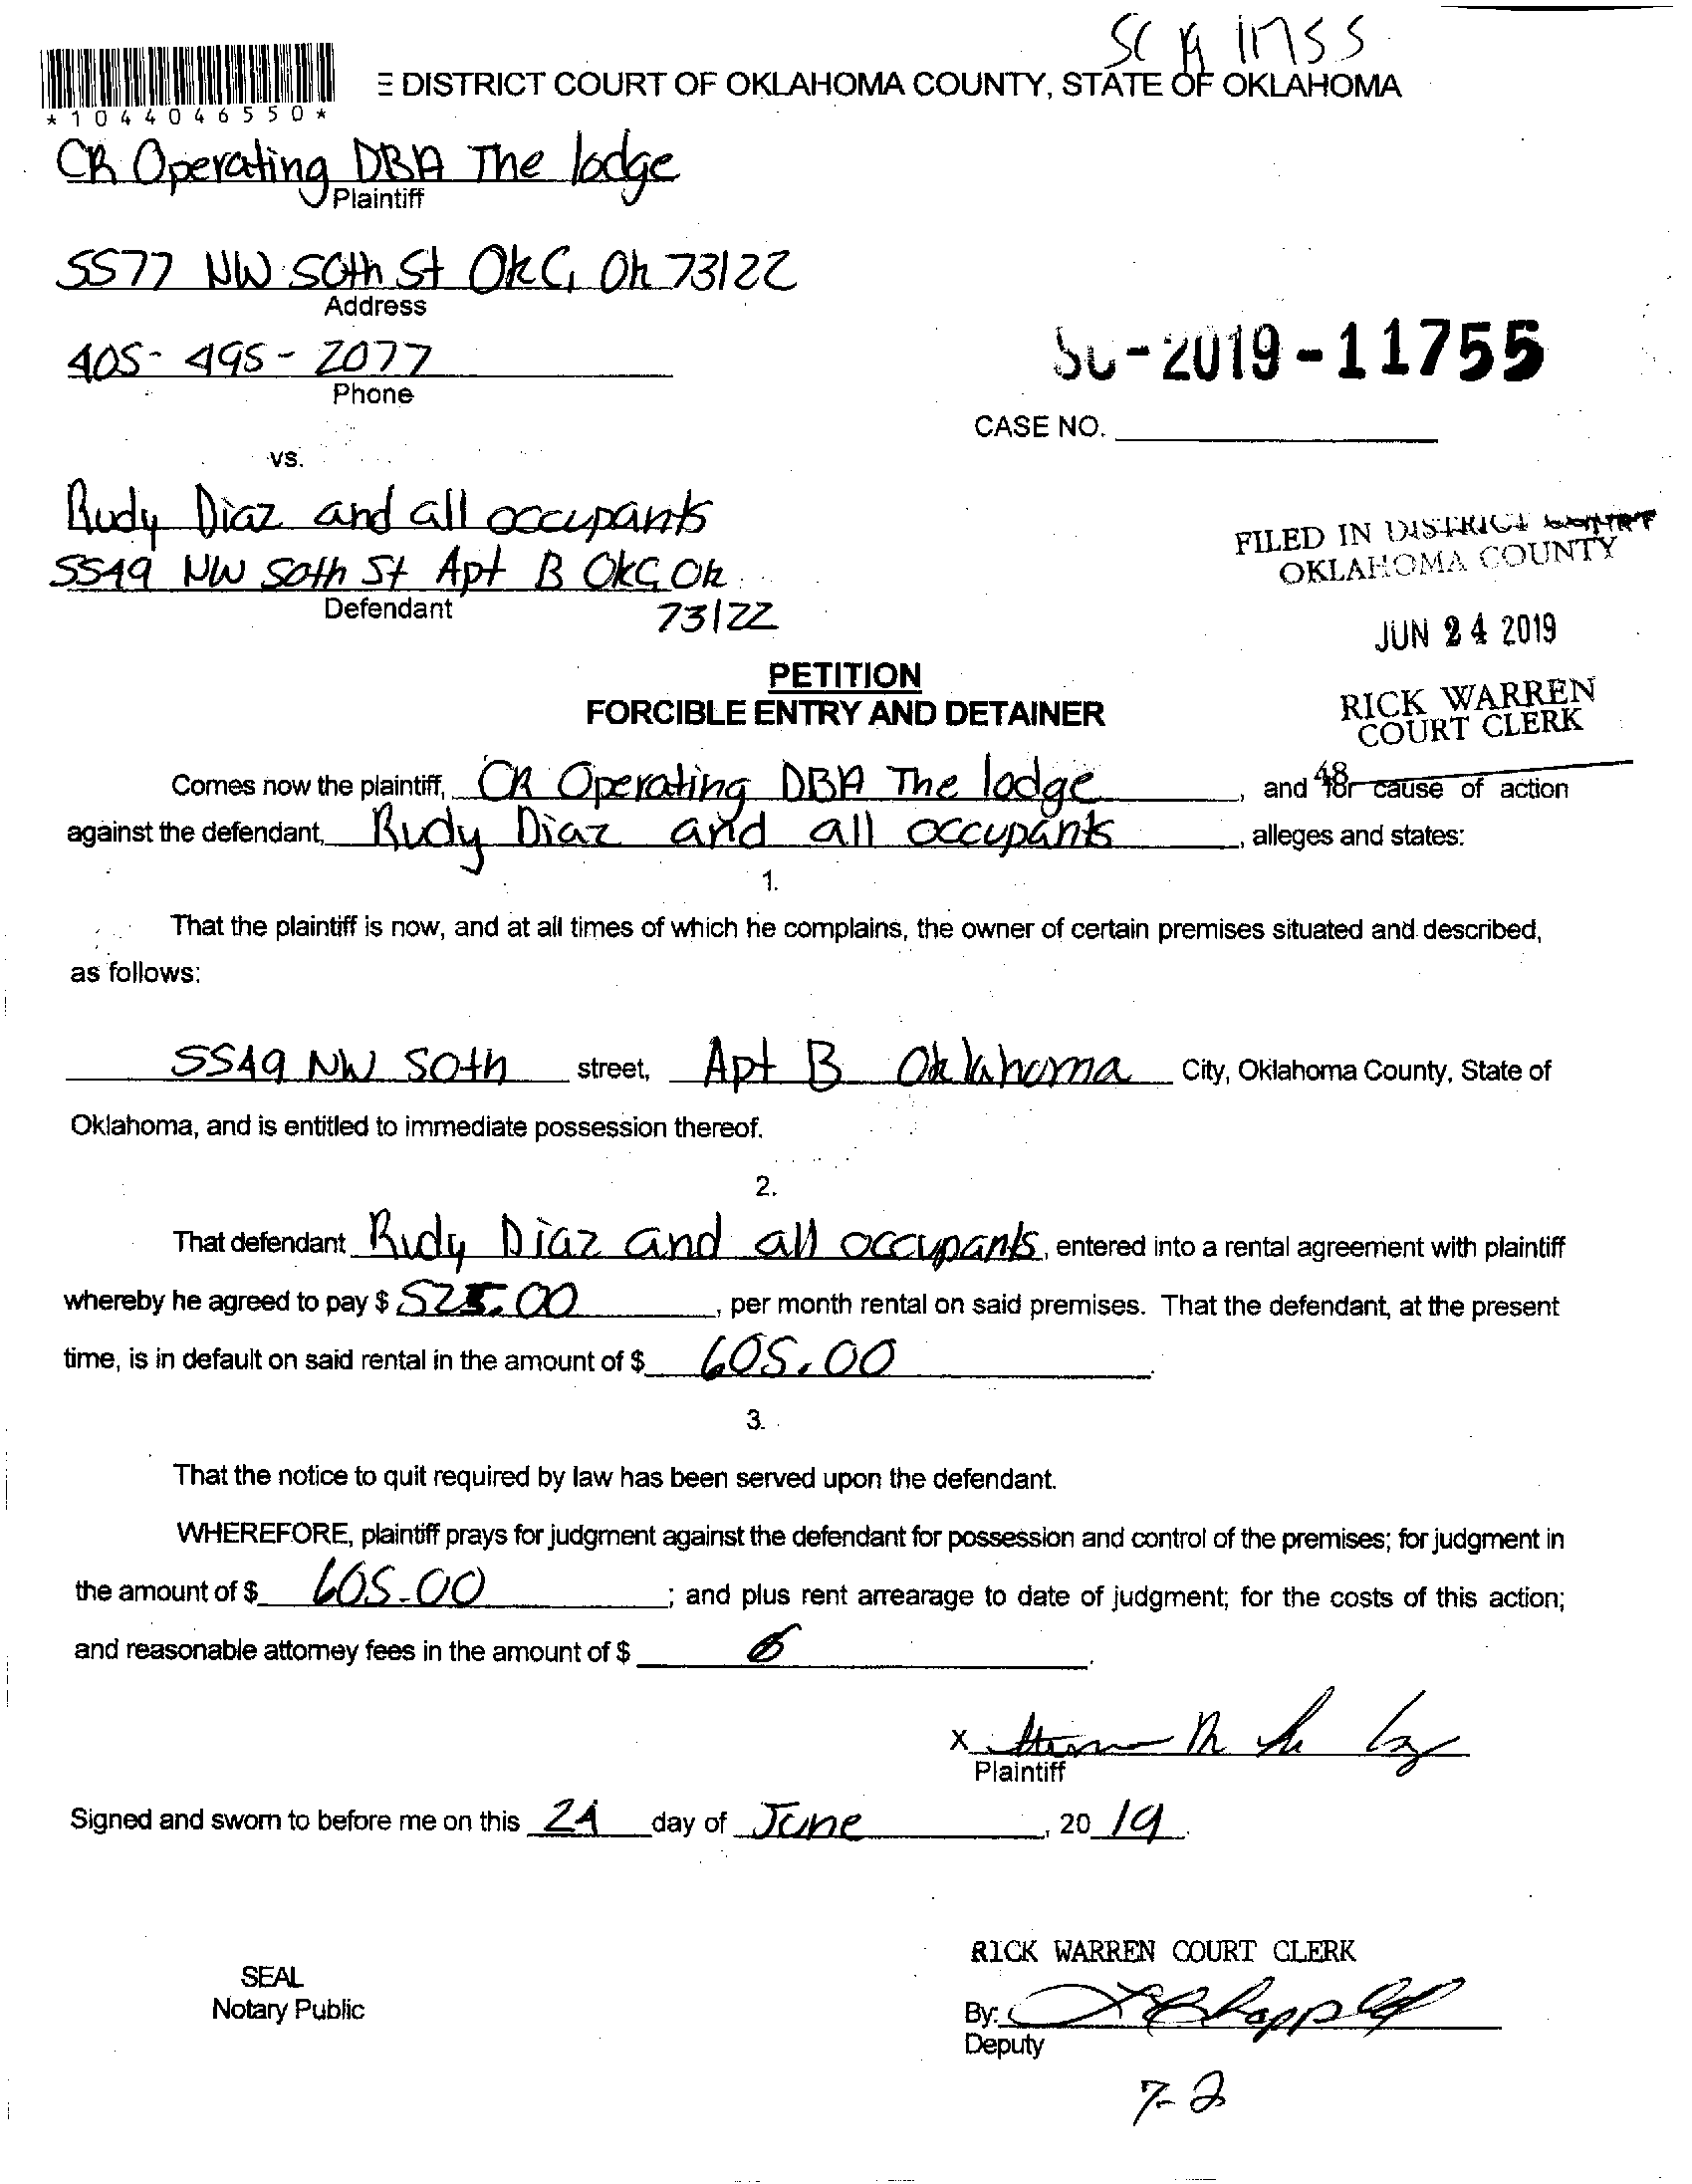 SC 19 11755
E DISTRICT COURT OF OKLAHOMA COUNTY, STATE OF OKLAHOMA
*1044046550*
CR Operating DBA The lodge
Plaintiff
5577 NW 50th St OKC, Ok 73122
Address
405-495-2077
Phone
SC-2019-11755
CASE NO.
vs.
Rudy Diaz and all occupants
5549 NW 50th St Apt B OKC, Ok
Defendant 73122
FILED IN DISTRICT COURT
OKLAHOMA COUNTY
JUN 24 2019
RICK WARREN
COURT CLERK
PETITION
FORCIBLE ENTRY AND DETAINER
48
Comes now the plaintiff, CR Operating DBA The lodge, and for cause of action
against the defendant, Rudy Diaz and all occupants, alleges and states:
1.
That the plaintiff is now, and at all times of which he complains, the owner of certain premises situated and described,
as follows:
5549 NW 50th street, Apt B Oklahoma City, Oklahoma County, State of
Oklahoma, and is entitled to immediate possession thereof.
2.
That defendant Rudy Diaz and all occupants, entered into a rental agreement with plaintiff
whereby he agreed to pay $ 525.00, per month rental on said premises. That the defendant, at the present
time, is in default on said rental in the amount of $ 605.00.
3.
That the notice to quit required by law has been served upon the defendant.
WHEREFORE, plaintiff prays for judgment against the defendant for possession and control of the premises; for judgment in
the amount of $ 605.00; and plus rent arrearage to date of judgment; for the costs of this action;
and reasonable attorney fees in the amount of $
X
Plaintiff
Signed and sworn to before me on this 24 day of June, 20 19.
RICK WARREN COURT CLERK
SEAL
Notary Public
By:
Deputy
7-2